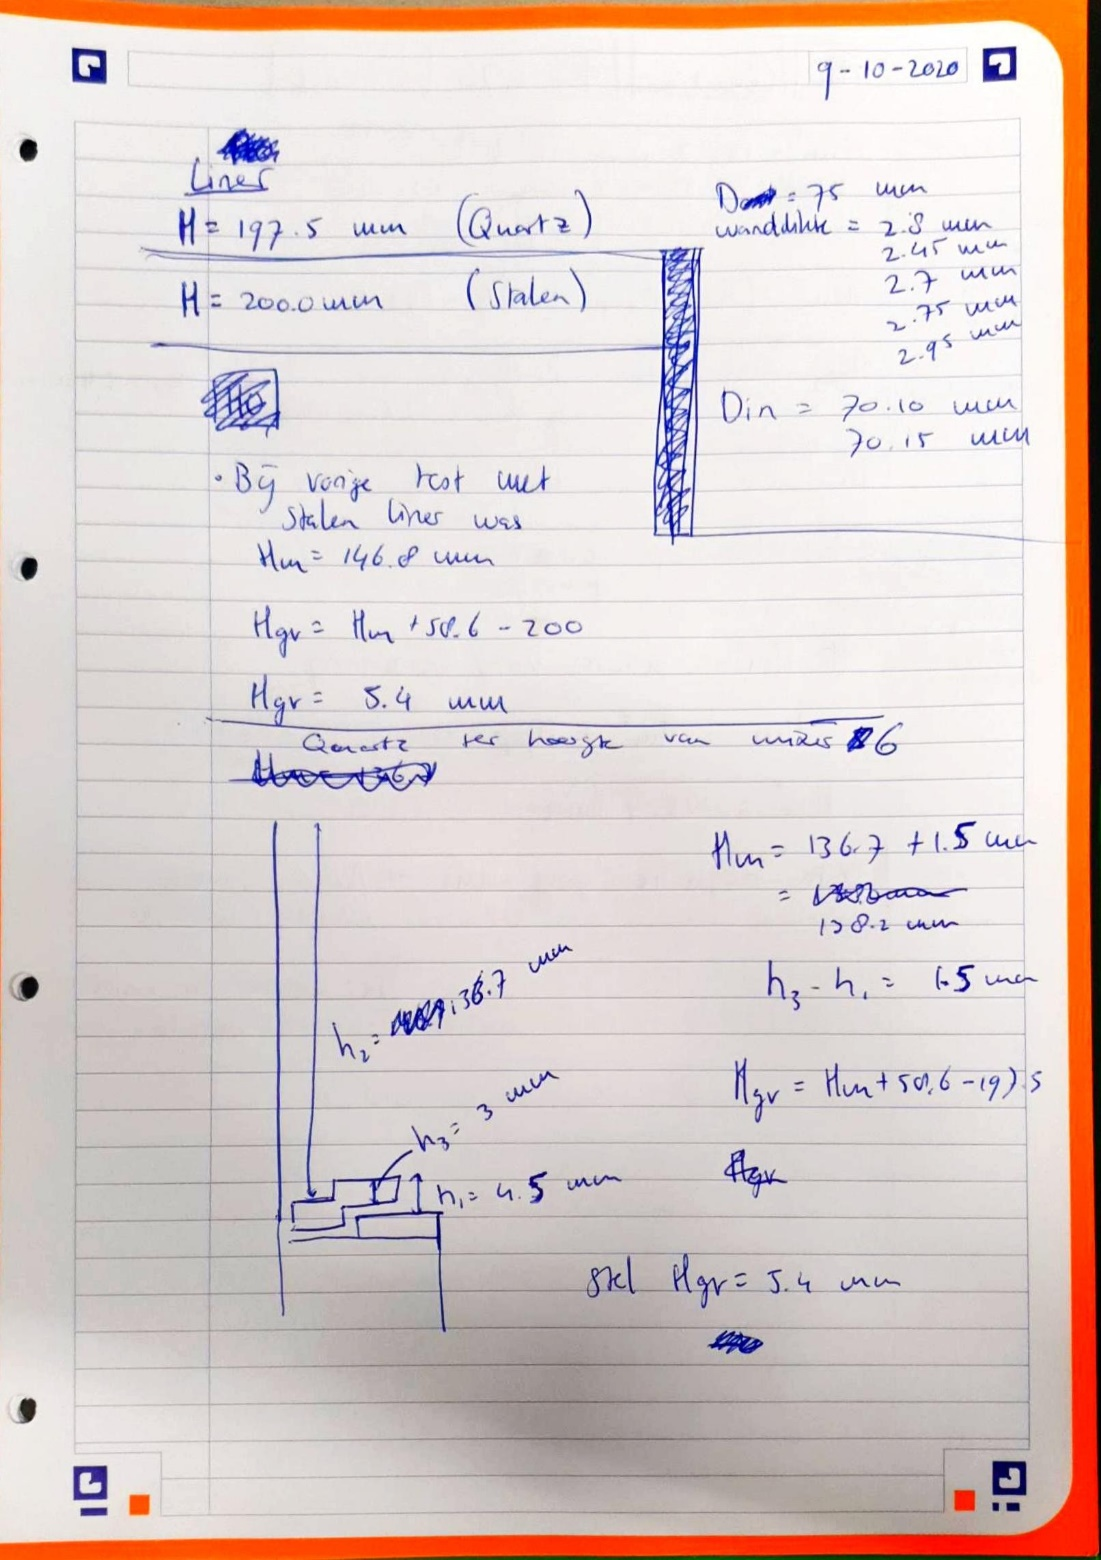 9-10-2020
Liner
H = 197.5 mm (Quartz)
H = 200.0 mm (Stalen)
D = 75 mm
wanddikte = 2.8 mm
2.45 mm
2.7 mm
2.75 mm
2.95 mm
Din = 70.10 mm
70.15 mm
• Bij vorige test met
stalen liner was
Hm = 146.8 mm
Hgv = Hm + 58.6 - 200
Hgv = 5.4 mm
Quartz ter hoogte van mixer 6
Hm = 136.7 + 1.5 mm
=
138.2 mm
h3 - h1 = 1.5 mm
h2 = 136.7 mm
h3 = 3 mm
h1 = 4.5 mm
Hgv = Hm + 58.6 - 197.5
Hgv
stel Hgv = 5.4 mm